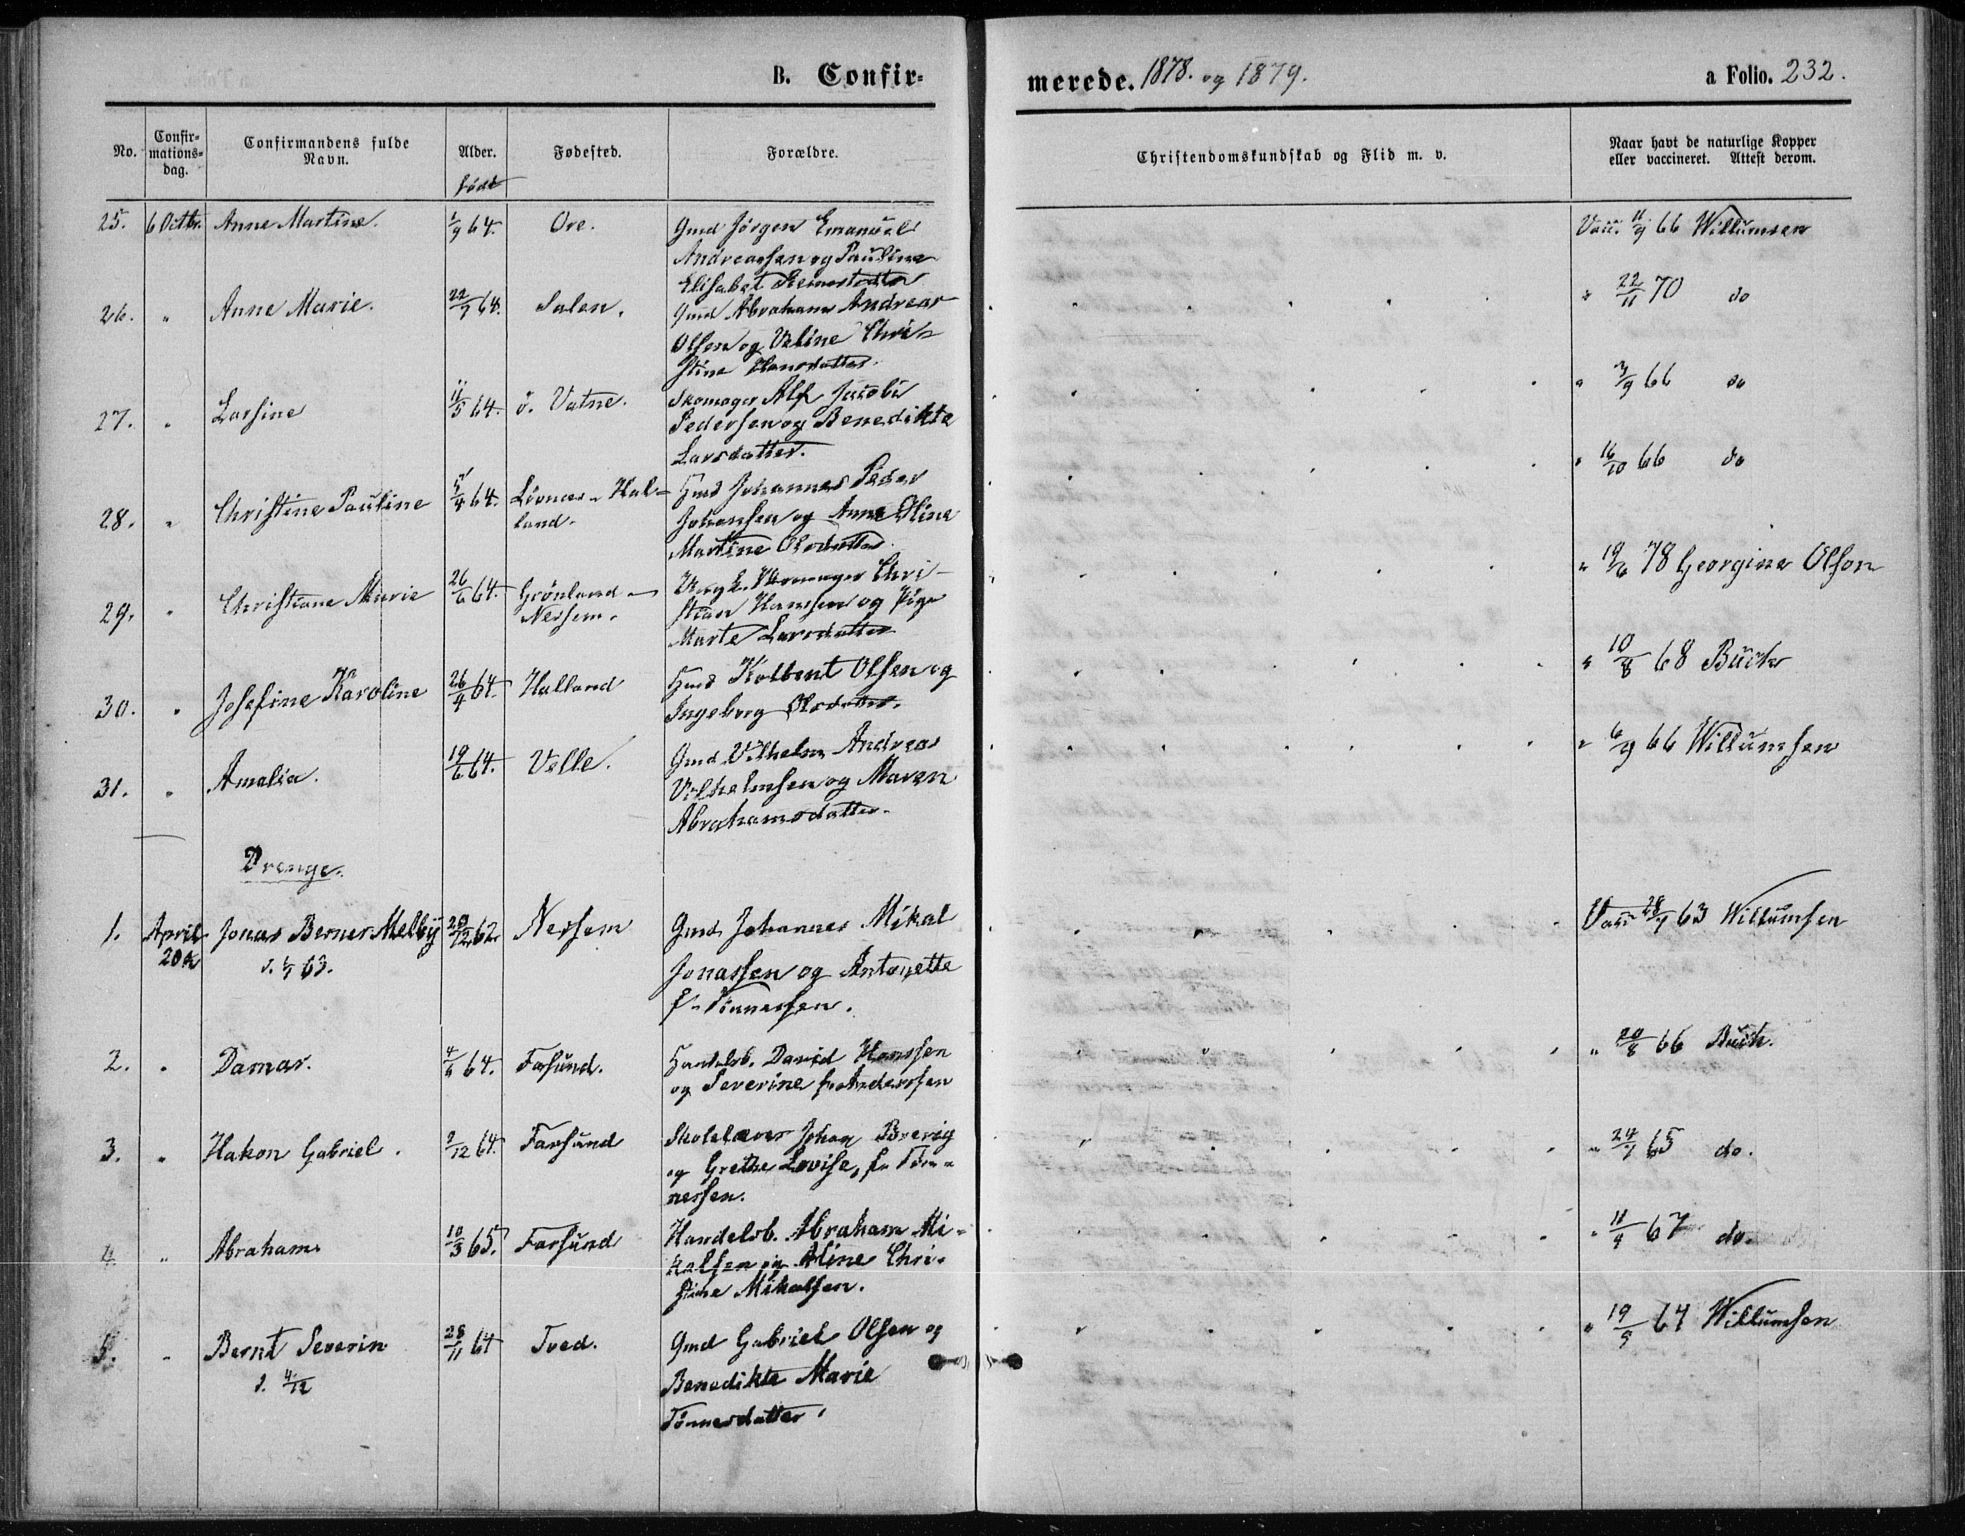 B. Confir-
merede. 1878. og 1879.
a Folio. 232.
No.
Confir-
mations-
dag.
Confirmandens fulde
Navn.
Alder.
født
Fødested.
Forældre.
Christendomskundskab og Flid m. v.
Naar havt de naturlige Kopper
eller vaccineret. Attest derom.
25. 6 Octbr. Anne Martine. 1/9 64. Ore. Gmd Jørgen Emanuel Vacc. 11/9 66 Willumsen
Andreassen og Pauline
Elisabet
26. " Anne Marie. 22/7 64. Salen. Gmd Abraham Andreas " 22/11 70 do
Olsen og Valine Chri-
stine Hansdatter.
27. " Larsine 11/5 64. ö. Vatne. Skomager Alf Jacobi " 3/9 66 do
Pedersen og Benedikte
Larsdatter.
28. " Christine Pauline 5/4 64. Lövnes - Hal- Hmd Johannes Peder " 16/10 66 do
land.
Johansen og Anne Oline
Martine Olsdatter.
29. " Christiane Marie 26/6 64. Grönland - Chri- " 19/6 78 Georgine Olson
Nersem.
stian Hansen og Pige
Marte Larsdatter
30. " Josefine Karoline 26/4 64. Halland Hmd Kolbent Olsen og " 10/8 68 Buch
Ingeborg Olsdatter.
31. " Amalia. 19/6 64. Velle. Gmd Vilhelm Andreas " 6/9 66 Willumsen
Vilhelmsen og Maren
Abrahamsdatter.
Drenge.
1. April Jonas Berner Melby 28/12 62. Nersem Gmd. Johannes Mikal Vacc 28/7 63 Willumsen
20de d. 1/1 63.
Jonassen og Antonette
f.
2. " Damar. 4/6 64. Farsund. Handelsb. David Hanssen " 20/8 66 Buch.
og Severine f. Anderssen
3. " Hakon Gabriel. 2/12 64. Farsund Skolelærer Johan Brevig " 24/7 65 do.
og Grethe Lovise, f. Tön-
nessen.
4. " Abraham 10/3 65. Farsund Handelsb. Abraham Mi- " 11/9 67 do.
kalsen og Aline Chri-
stine Mikalsen.
5. " Bernt Severin 28/11 64 Tved. Gmd Gabriel Olsen og " 19/9 67 Willumsen
d. 4/12
Benedikte Marie
Tönnesdatter.